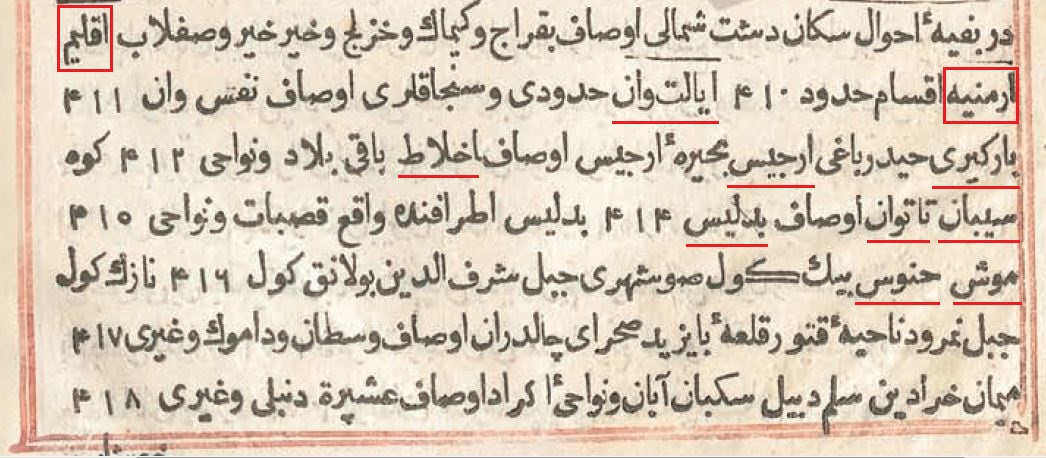 در بقیهٔ احوال سکان دشت شمالی اوصاف بقراج وکیماك وخزلج وخیرخیر وصقلاب اقلیم
ارمنیه اقسام حدود ٤١٠ ایالت وان حدودی وسنجاقلری اوصاف نفس وان ٤١١
بارکیری حیدر باغی ارجیس بحیرهٔ ارجیس اوصاف اخلاط باقی بلاد ونواحی ٤١٢ کوه
سیبان تاتوان اوصاف بدلیس ٤١٤ بدلیس اطرافنده واقع قصبات ونواحی ٤١٥
موش حنوس بیك کول صوشهری جبل شرف الدین بولانق کول ٤١٦ نازك کول
جبل نمرود ناحیهٔ قنور قلعهٔ بایزید صحرای چالدران اوصاف وسطان وداموك وغیری ٤١٧
میمان خرادین سلم دبیل سکبان آبان ونواحیٔ اکراد اوصاف عشیرة دنبلی وغیری ٤١٨